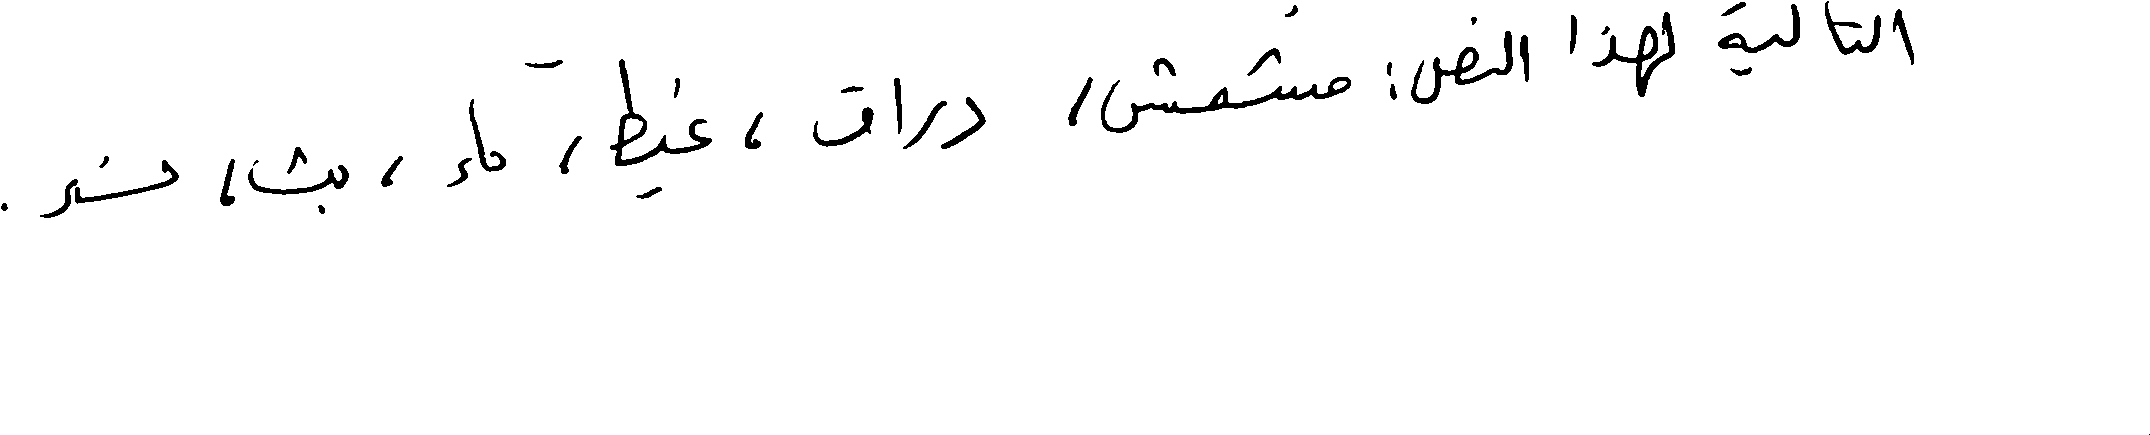 التالية لهذا النص: مشمش، دراق، غيط، ماء، بث،